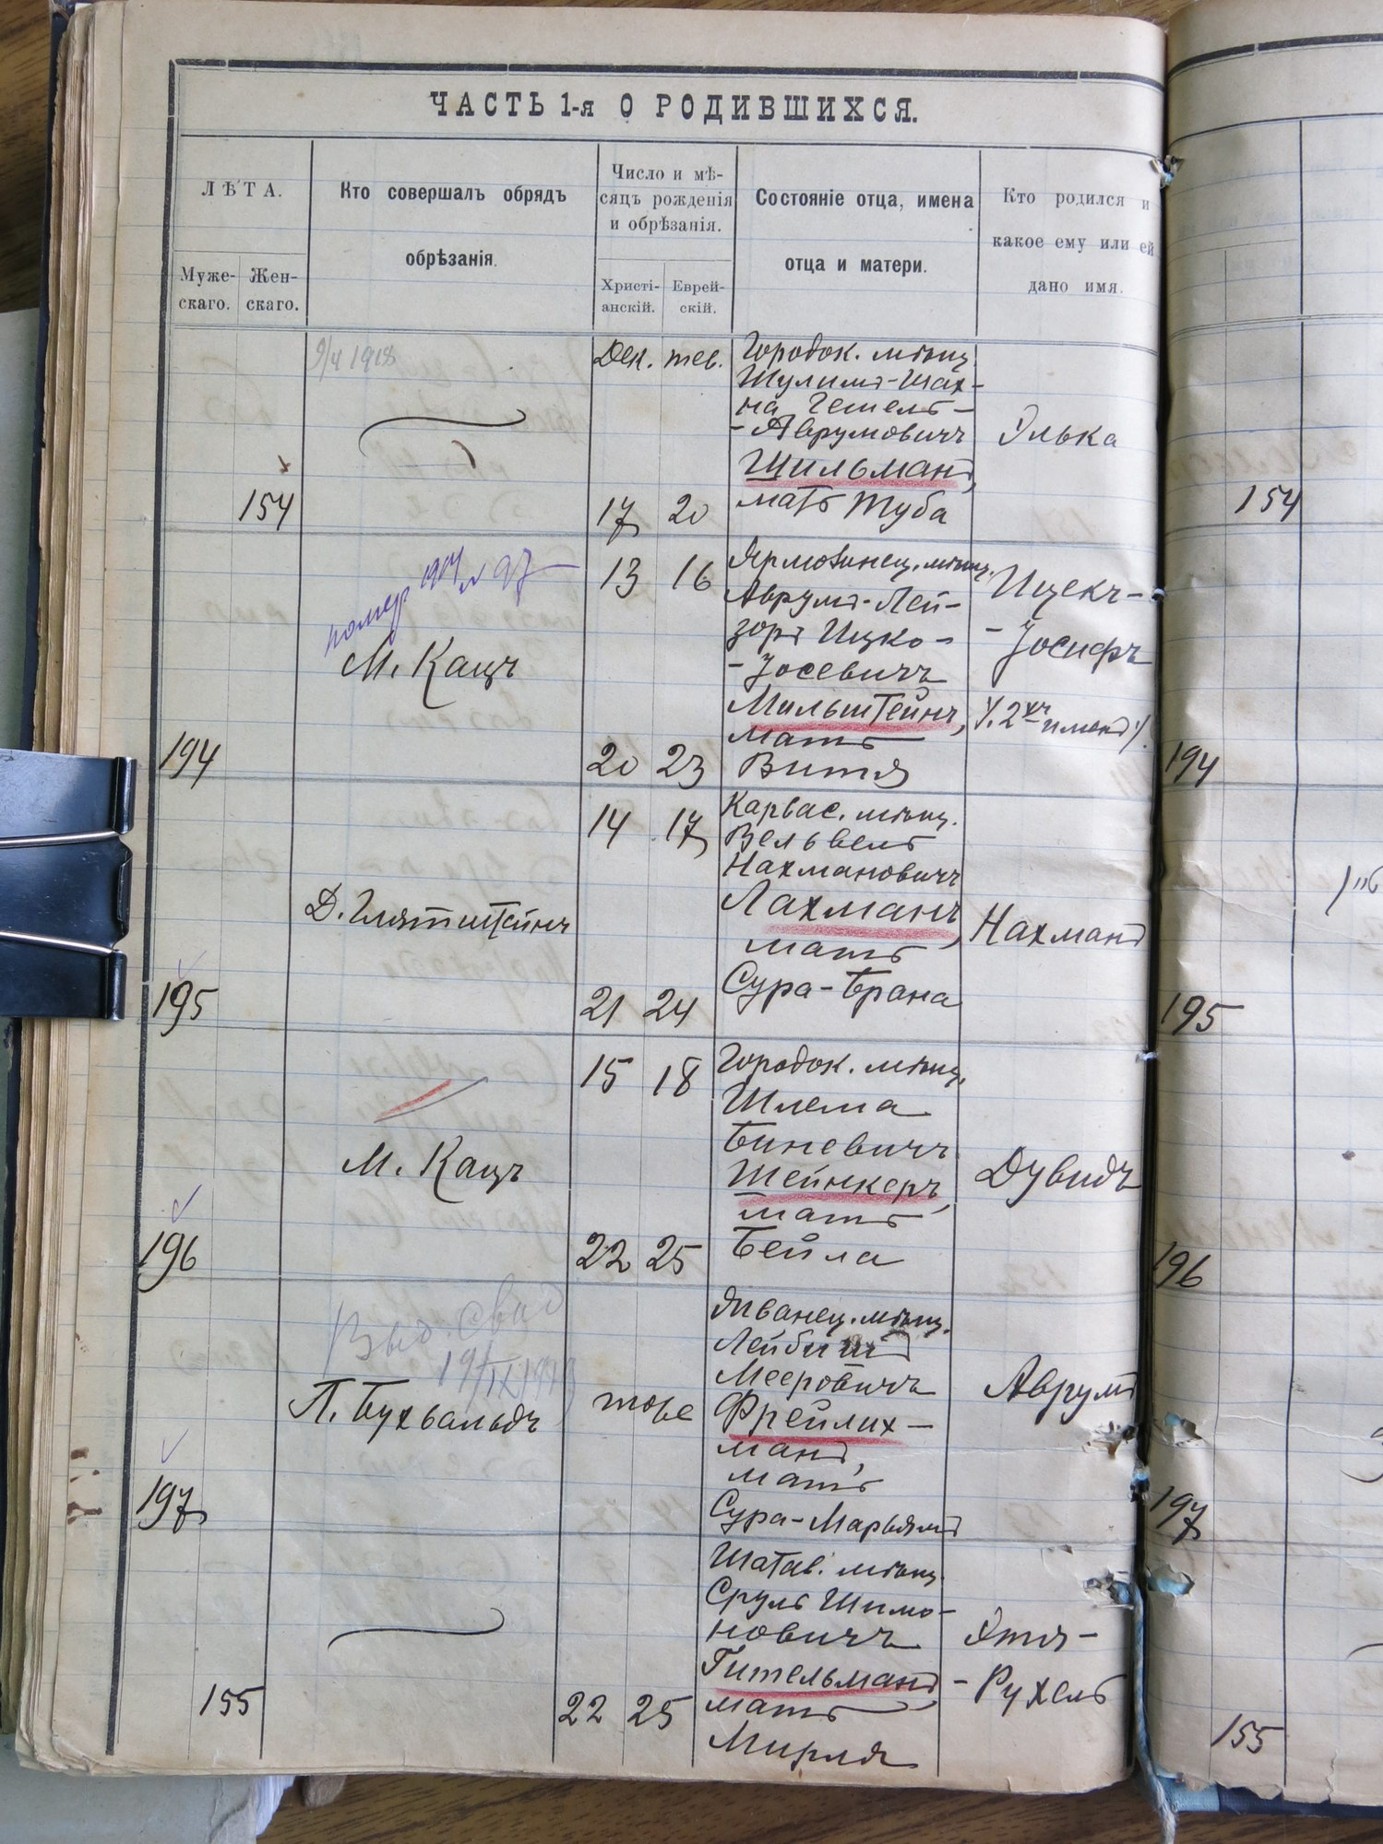 ЧАСТЬ 1-я О РОДИВШИХСЯ.
ЛѢТА.
Муже-
скаго.
Жен-
скаго.
Кто совершалъ обрядъ
обрѣзанія.
Число и мѣ-
сяцъ рожденія
и обрѣзанія.
Христі-
анскій.
Еврей-
скій.
Состояніе отца, имена
отца и матери.
Кто родился и
какое ему или ей
дано имя.
9/4 1918
Дек. тев.
Городок. мѣщ.
Шулимъ-Шах-
на Гешелъ-
-Аврумовичъ
Шильманъ,
мать Туба
Элька
154
17 20
154
номер 1914 № 97
13 16
Ярмолинец. мѣщ.
Аврумъ-Лей-
зоръ Ицко-
-Іосевичъ
Мильштейнъ,
мать
Витя
Ицекъ-
-Іосифъ
/. 2хъ именъ /.
М. Кацъ
194
20 23
194
14 17
Карвас. мѣщ.
Вельвель
Нахмановичъ
Лахманъ,
мать
Сура-Брана
Д. Глятштейнъ
Нахманъ
195
21 24
195
15 18
Городок. мѣщ.
Шлема
Биневичъ
Шейнкеръ,
мать
Бейла
М. Кацъ
Дувидъ
196
22 25
196
Выд. свид
19/IX
П. Бухвальдъ
тоже
Жванец. мѣщ.
Лейбиш
Мееровичъ
Фрейлих-
манъ,
мать
Сура-Марьямъ
Аврумъ
197
197
Шатав. мѣщ.
Сруль Шимо-
новичъ
Гительманъ,
мать
Мирля
Этя-
-Рухель
155
22 25
155